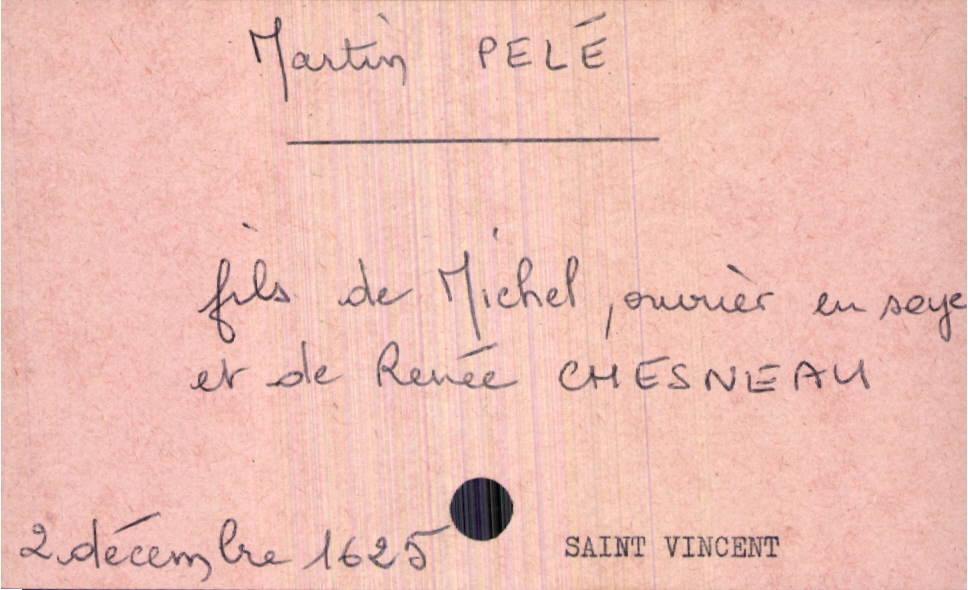 Martin PELÉ
fils de Michel, ouvrier en soye
et de Renée CHESNEAU
2 décembre 1625
SAINT VINCENT